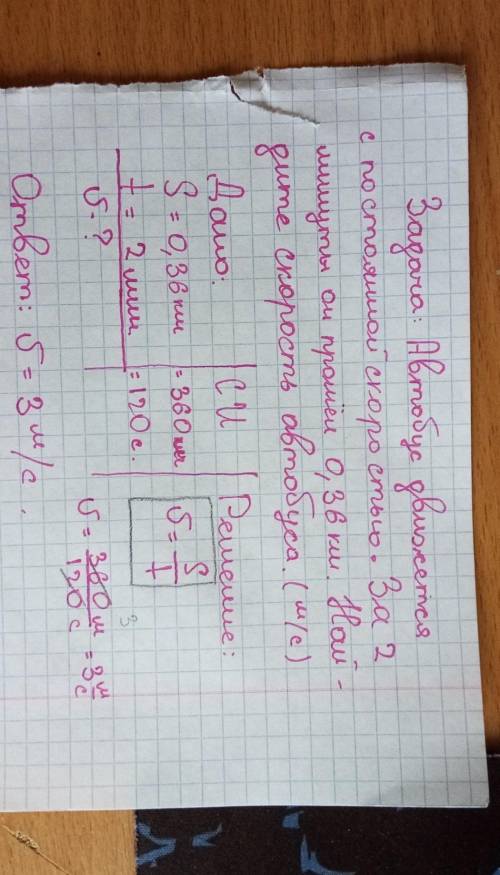 Задача: Автобус движется
с постоянной скоростью. За 2
минуты он прошёл 0,36 км. Най-
дите скорость автобуса. (м/с)
Дано: | СИ | Решение:
S = 0,36 км | = 360 м | υ = S/t
t = 2 мин | = 120 с.
υ - ? | υ = 360 м / 120 с = 3 м/с
3
Ответ: υ = 3 м/с.